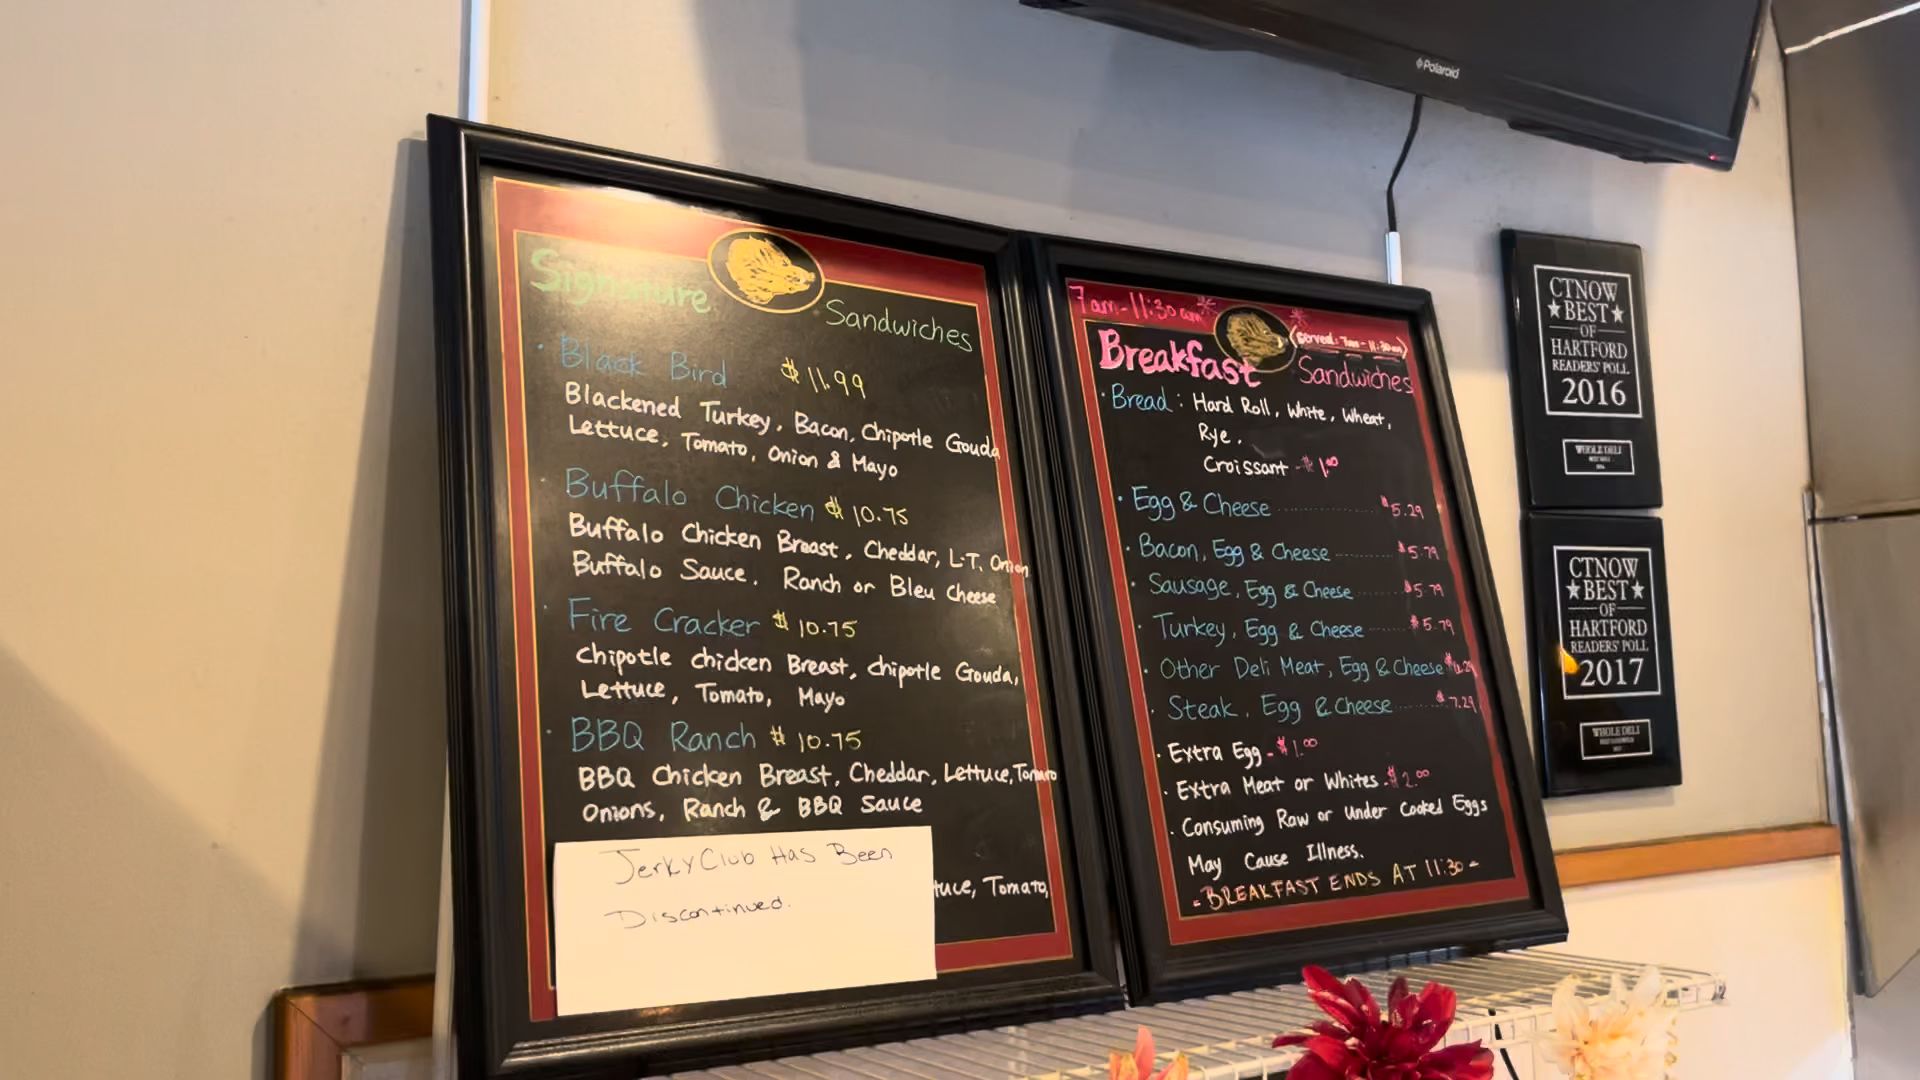 Polaroid
Signature
Sandwiches
Black Bird $11.99
Blackened Turkey, Bacon, Chipotle Gouda
Lettuce, Tomato, Onion & Mayo
Buffalo Chicken $10.75
Buffalo Chicken Breast, Cheddar, L-T, Onion
Buffalo Sauce, Ranch or Bleu Cheese
Fire Cracker $10.75
Chipotle chicken Breast, chipotle Gouda,
Lettuce, Tomato, Mayo
BBQ Ranch $10.75
BBQ Chicken Breast, Cheddar, Lettuce, Tomato
Onions, Ranch & BBQ Sauce
tuce, Tomato,
Jerky Club Has Been
Discontinued.
7am-11:30am
(Served: 7am-11:30am)
Breakfast
Sandwiches
Bread: Hard Roll, White, Wheat,
Rye.
Croissant - $1.00
Egg & Cheese ........... $5.29
Bacon, Egg & Cheese ........ $5.79
Sausage, Egg & Cheese ....... $5.79
Turkey, Egg & Cheese ...... $5.79
Other Deli Meat, Egg & Cheese
Steak, Egg & Cheese ...... $7.29
Extra Egg - $1.00
Extra Meat or Whites - $2.00
Consuming Raw or Under Cooked Eggs
May Cause Illness.
- BREAKFAST ENDS AT 11:30 -
CTNOW
BEST
OF
HARTFORD
READERS' POLL
2016
WHOLE DELI
CTNOW
BEST
OF
HARTFORD
READERS' POLL
2017
WHOLE DELI
2017